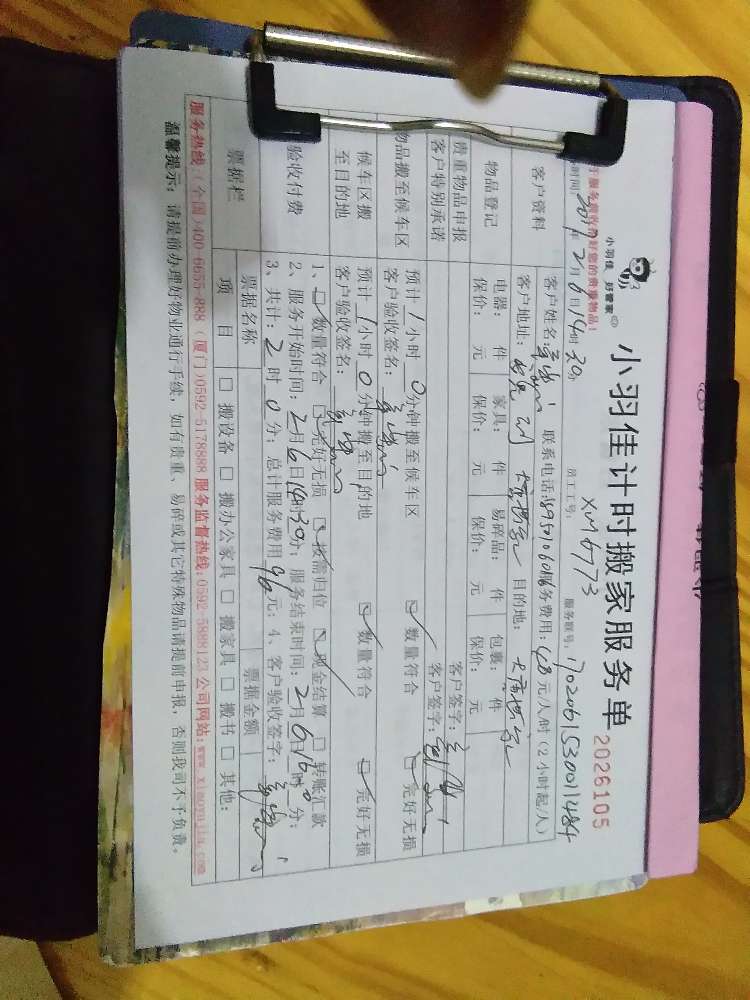 小羽佳 好管家
小羽佳计时搬家服务单 2026105
于服务前收拾好您的贵重物品!
时间:2017年2月6日14时30分 员工工号: XM6773 服务联号: 1702061530011484
客户资料
客户姓名: 联系电话: 服务费用:48元/人/时(2小时起/人)
客户地址: 目的地:
物品登记
电器: 件 家具: 件 易碎品: 件 包裹: 件
保价: 元 保价: 元 保价: 元 保价: 元
贵重物品申报
客户特别承诺
客户签字:
客户签字:
物品搬至候车区
预计1小时0分钟搬至候车区 数量符合 完好无损
客户验收签名:
候车区搬至目的地
预计1小时0分钟搬至目的地 数量符合 完好无损
客户验收签名:
验收付费
1、数量符合 完好无损 按需归位 现金结算 转账汇款
2、服务开始时间:2月6日14时30分;服务结束时间:2月6日16时 分;
3、共计:2时0分;总计服务费用96元;4、客户验收签字:
票据栏
票据名称 票据金额
项目 搬设备 搬办公家具 搬家具 搬书 其他:
服务热线:(全国)400-6655-888 (厦门)0592-5178888 服务监督热线:0592-5888123 公司网站:www.xiaoyujia.com
温馨提示:请提前办理好物业通行手续,如有贵重、易碎或其它特殊物品请提前申报,否则我司不予负责。